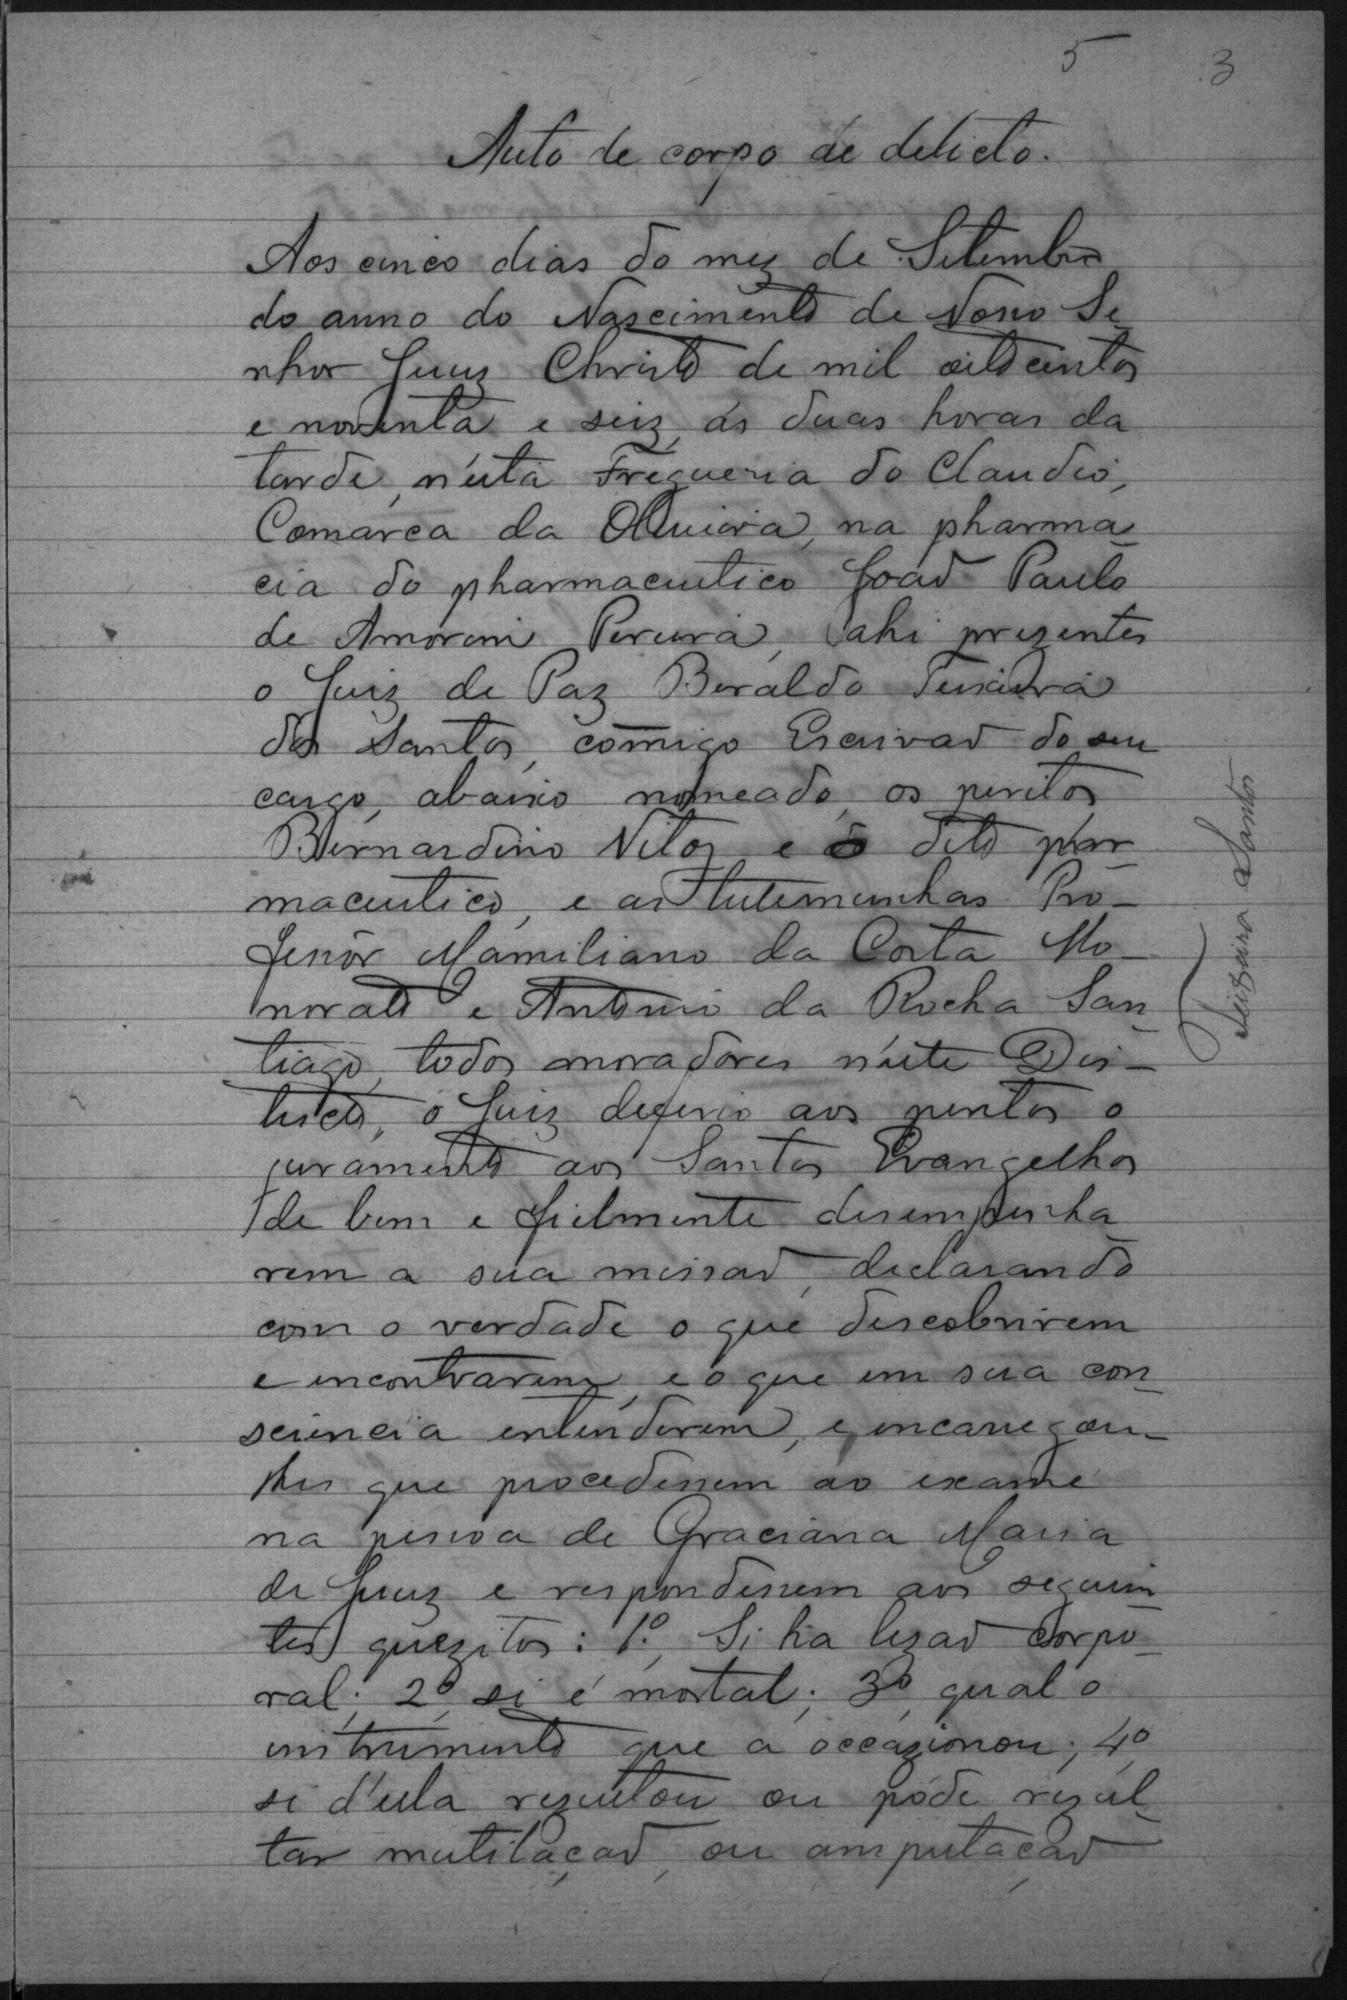 5 3
Auto de corpo de delicto.
Aos cinco dias do mez de Setembro
do anno do Nascimento de Nosso Se-
nhor Jesuz Christo de mil oitocentos
e noventa e seiz, ás duas horas da
tarde, n'esta Freguezia do Claudio,
Comarca da Oliveira, na pharma-
cia do pharmaceutico João Paulo
de Amorim Pereira, ahi prezentes
o Juiz de Paz Beraldo Teixeira
dos Santos, comigo Escrivão do seu
cargo, abaixo nomeado, os peritos
Bernardino e o dito phar-
maceutico, e as testemunhas Pro-
fessor Mamiliano da Costa Ho-
norato e Antonio da Rocha San-
tiago, todos moradores n'este Dis-
tricto, o Juiz deferio aos peritos o
juramento aos Santos Evangelhos
de bem e fielmente desempenha-
rem a sua missão, declarando
com o verdade o que descobrirem
e encontrarem, e o que em sua con-
sciencia entenderem, e, encarregou-
lhes que procedessem ao exame
na pessoa de Graciana Maria
de Jesuz e respondessem aos seguin-
tes quezitos: 1º, Si ha lezão corpo-
ral; 2º, si é mortal; 3º, qual o
instrumento que a occazionou; 4º,
si d'ella rezultou ou póde rezul-
tar mutilação, ou amputação
Teixeira Santos